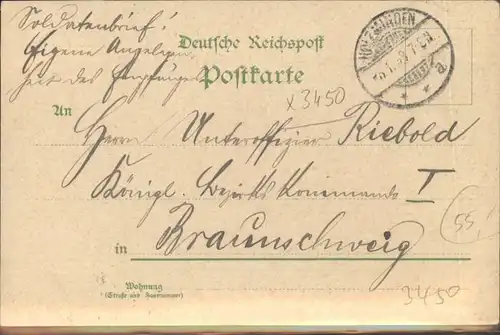 Soldatenbrief!
Eigene Angelegen
heit des Empfängers
Deutsche Reichspost
Postkarte
HOLZMINDEN
7-8N.
a.
x3450
An
Herrn Unteroffizier Riebold
Königl. Bezirks Kommando I
in Braunschweig
55,
Wohnung
(Straße und Hausnummer)
3450